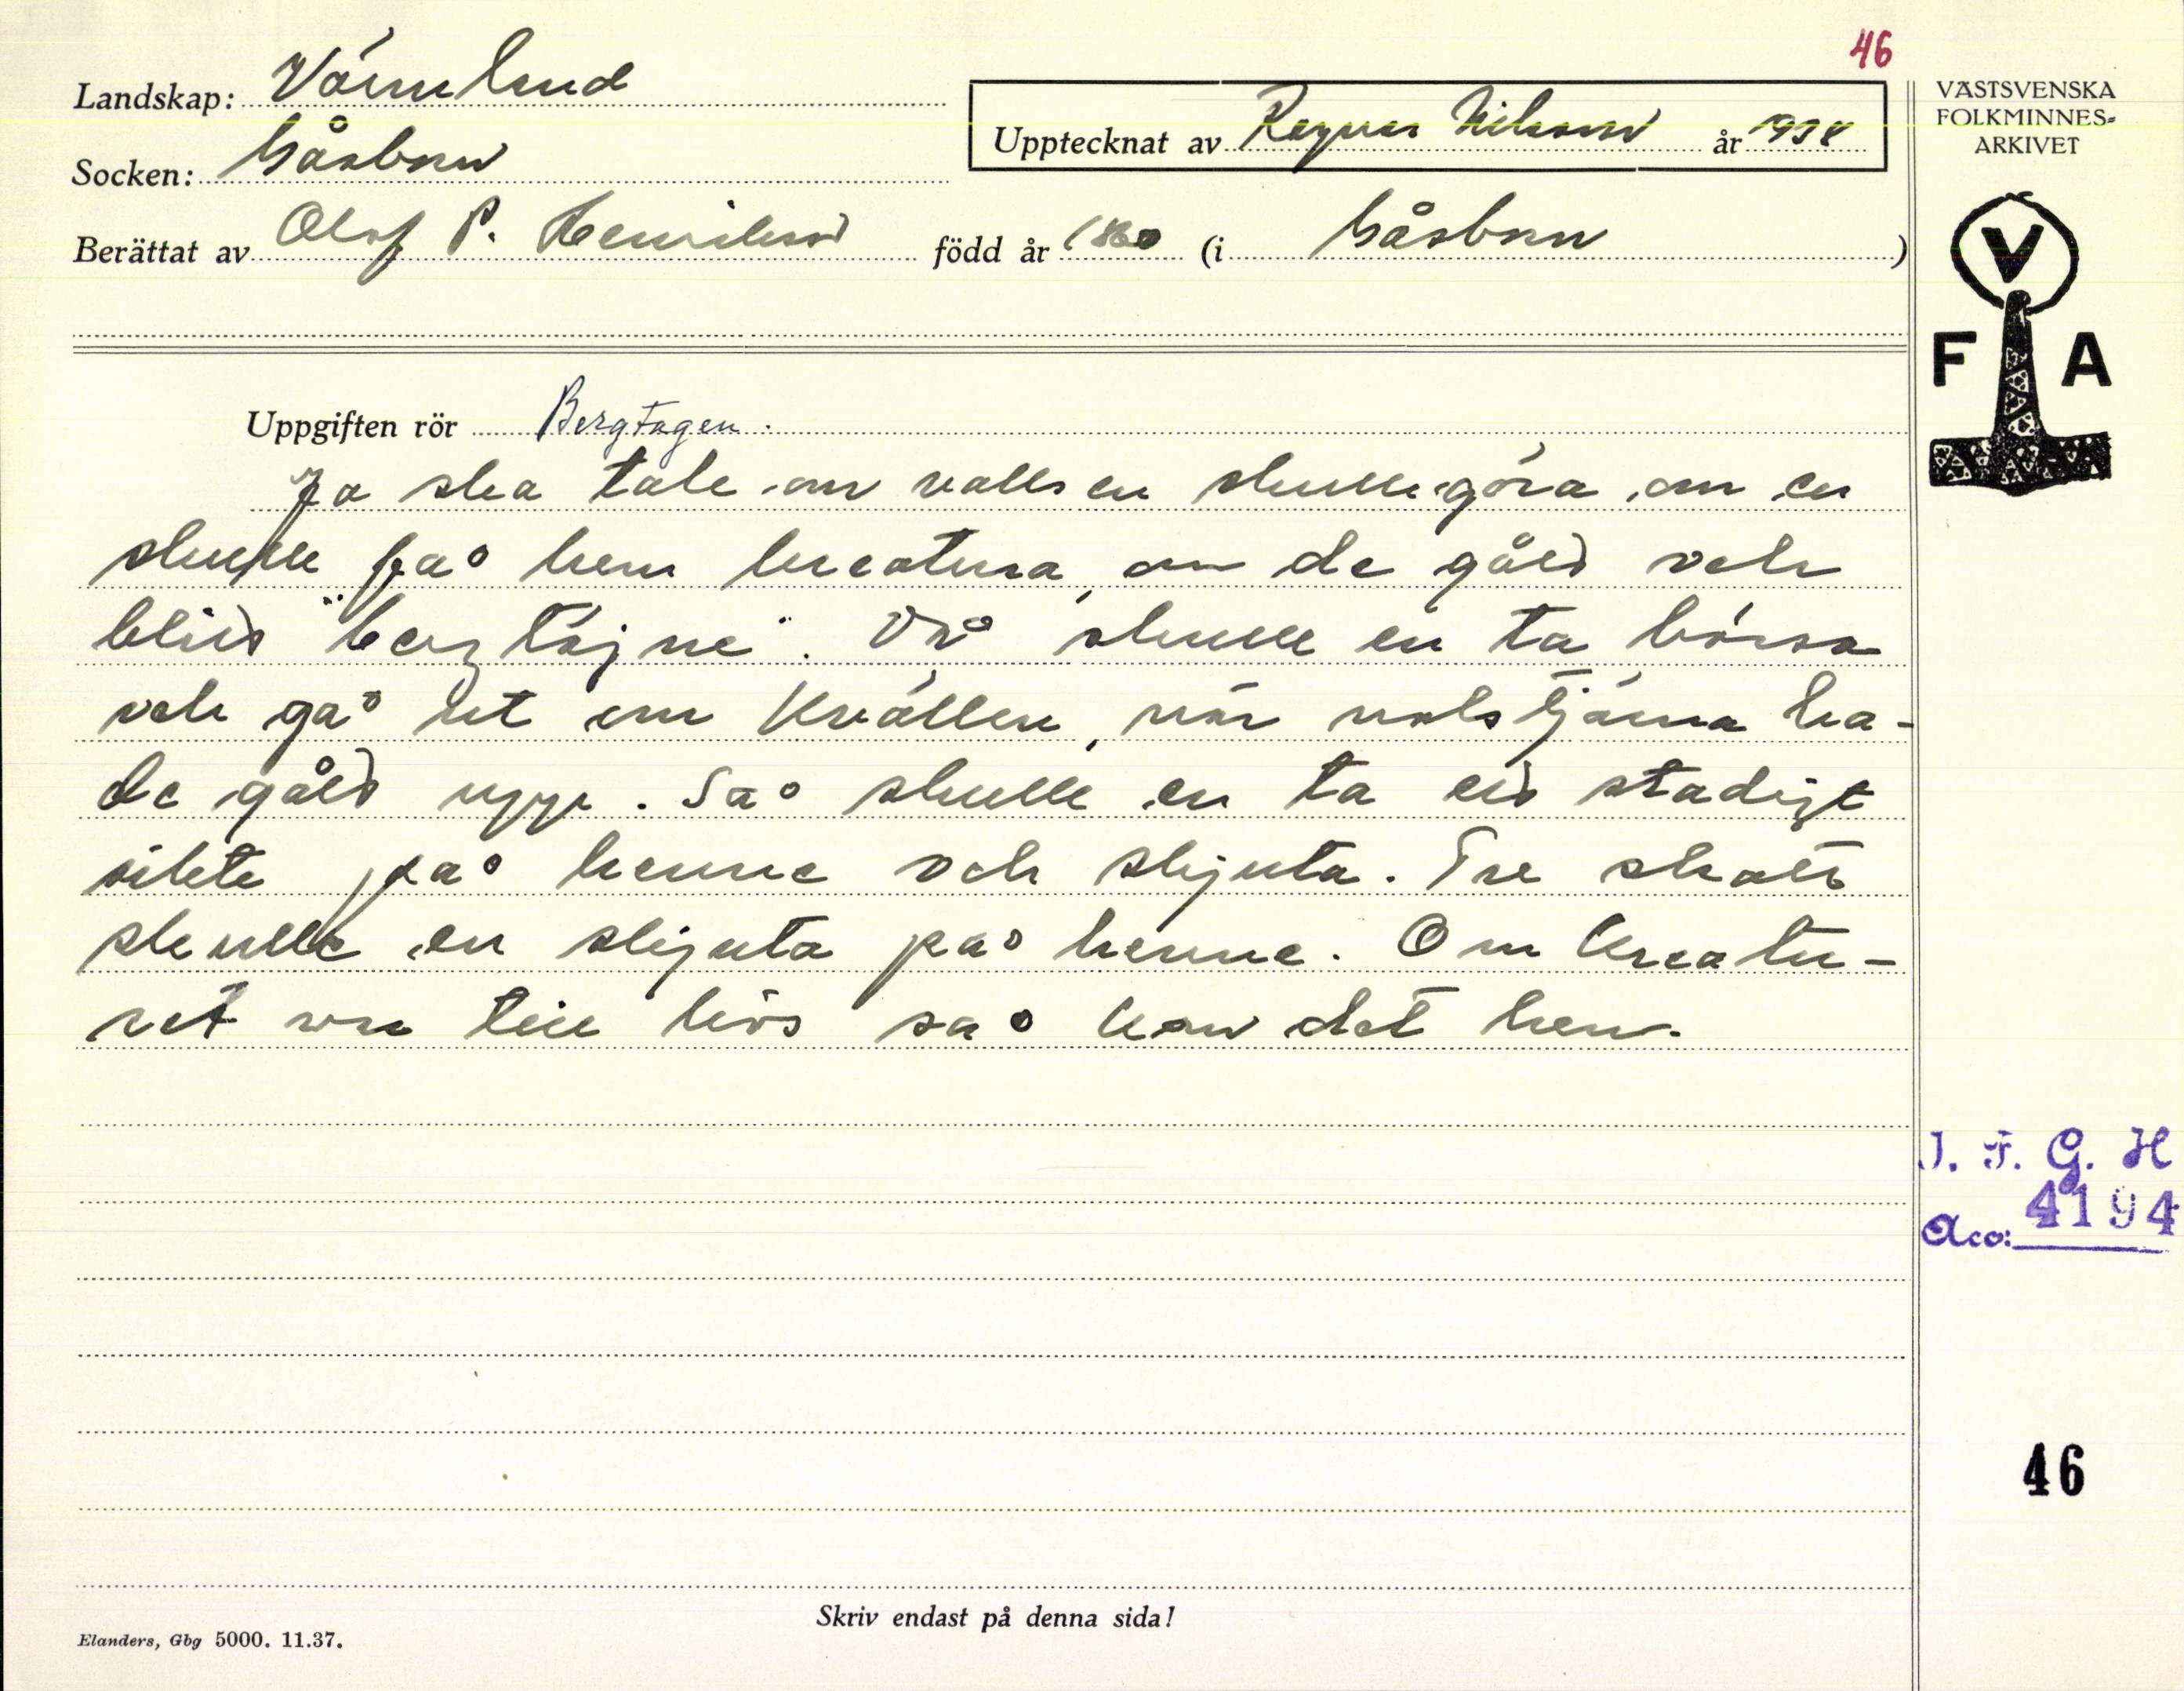 46
Landskap: Värmland
Upptecknat av Ragnar Nilsson år 1938
VÄSTSVENSKA
FOLKMINNES-
ARKIVET
Socken: Gåsborn
Berättat av Olof P. Henrikson född år 1860 (i Gåsborn)
V
F A
Uppgiften rör Bergtagen.
Ja ska tale om va en skulle göra, om en
skulle få hem kreatura, om de gått och
blitt "bergtäjne". Då skulle en ta bössa
och gå ut om kvällen, när nolstjärna ha-
de gått upp. Så skulle en ta ett stadigt
sikte på henne och skjuta. Tre skott
skulle en skjuta på henne. Om kreatu-
ret va te livs så kom det hem.
I. F. G. H
4194
Acc:
46
Skriv endast på denna sida!
Elanders, Gbg 5000. 11.37.